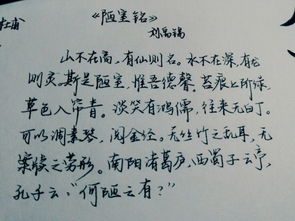 《陋室铭》
刘禹锡
山不在高，有仙则名。水不在深，有龙
则灵。斯是陋室，惟吾德馨。苔痕上阶绿，
草色入帘青。谈笑有鸿儒，往来无白丁。
可以调素琴，阅金经。无丝竹之乱耳，无
案牍之劳形。南阳诸葛庐，西蜀子云亭，
孔子云：“何陋之有？”